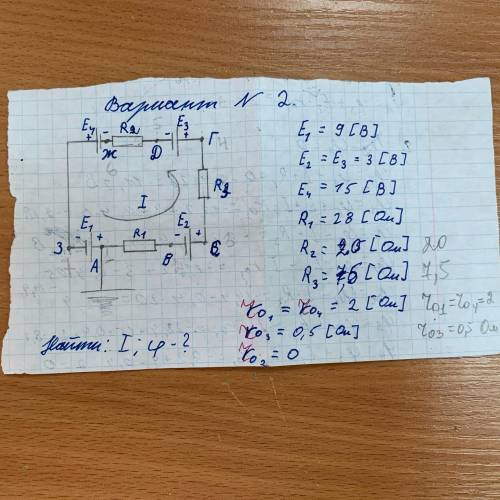 Вариант № 2.
E4 R2 E3
+ - - +
Ж Д Г
I
R3
E1 E2
- + R1 - +
З А В С
E1 = 9 [В]
E2 = E3 = 3 [В]
E4 = 15 [В]
R1 = 28 [Ом]
R2 = 20 [Ом] 20
R3 = 7,5 [Ом] 7,5
r01 = r04 = 2 [Ом] r01=r04=2
r03 = 0,5 [Ом] r03=0,5 Ом
r02 = 0
Найти: I; φ - ?